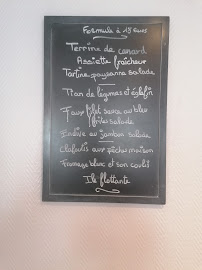 Formule à 15 euros
Terrine de canard
Assiette fraîcheur
Tartine paysanne salade
Flan de légumes et églefin
Faux filet sauce au bleu
frites salade
Endive au jambon salade
Clafoutis aux pêches maison
Fromage blanc et son coulis
Ile flottante